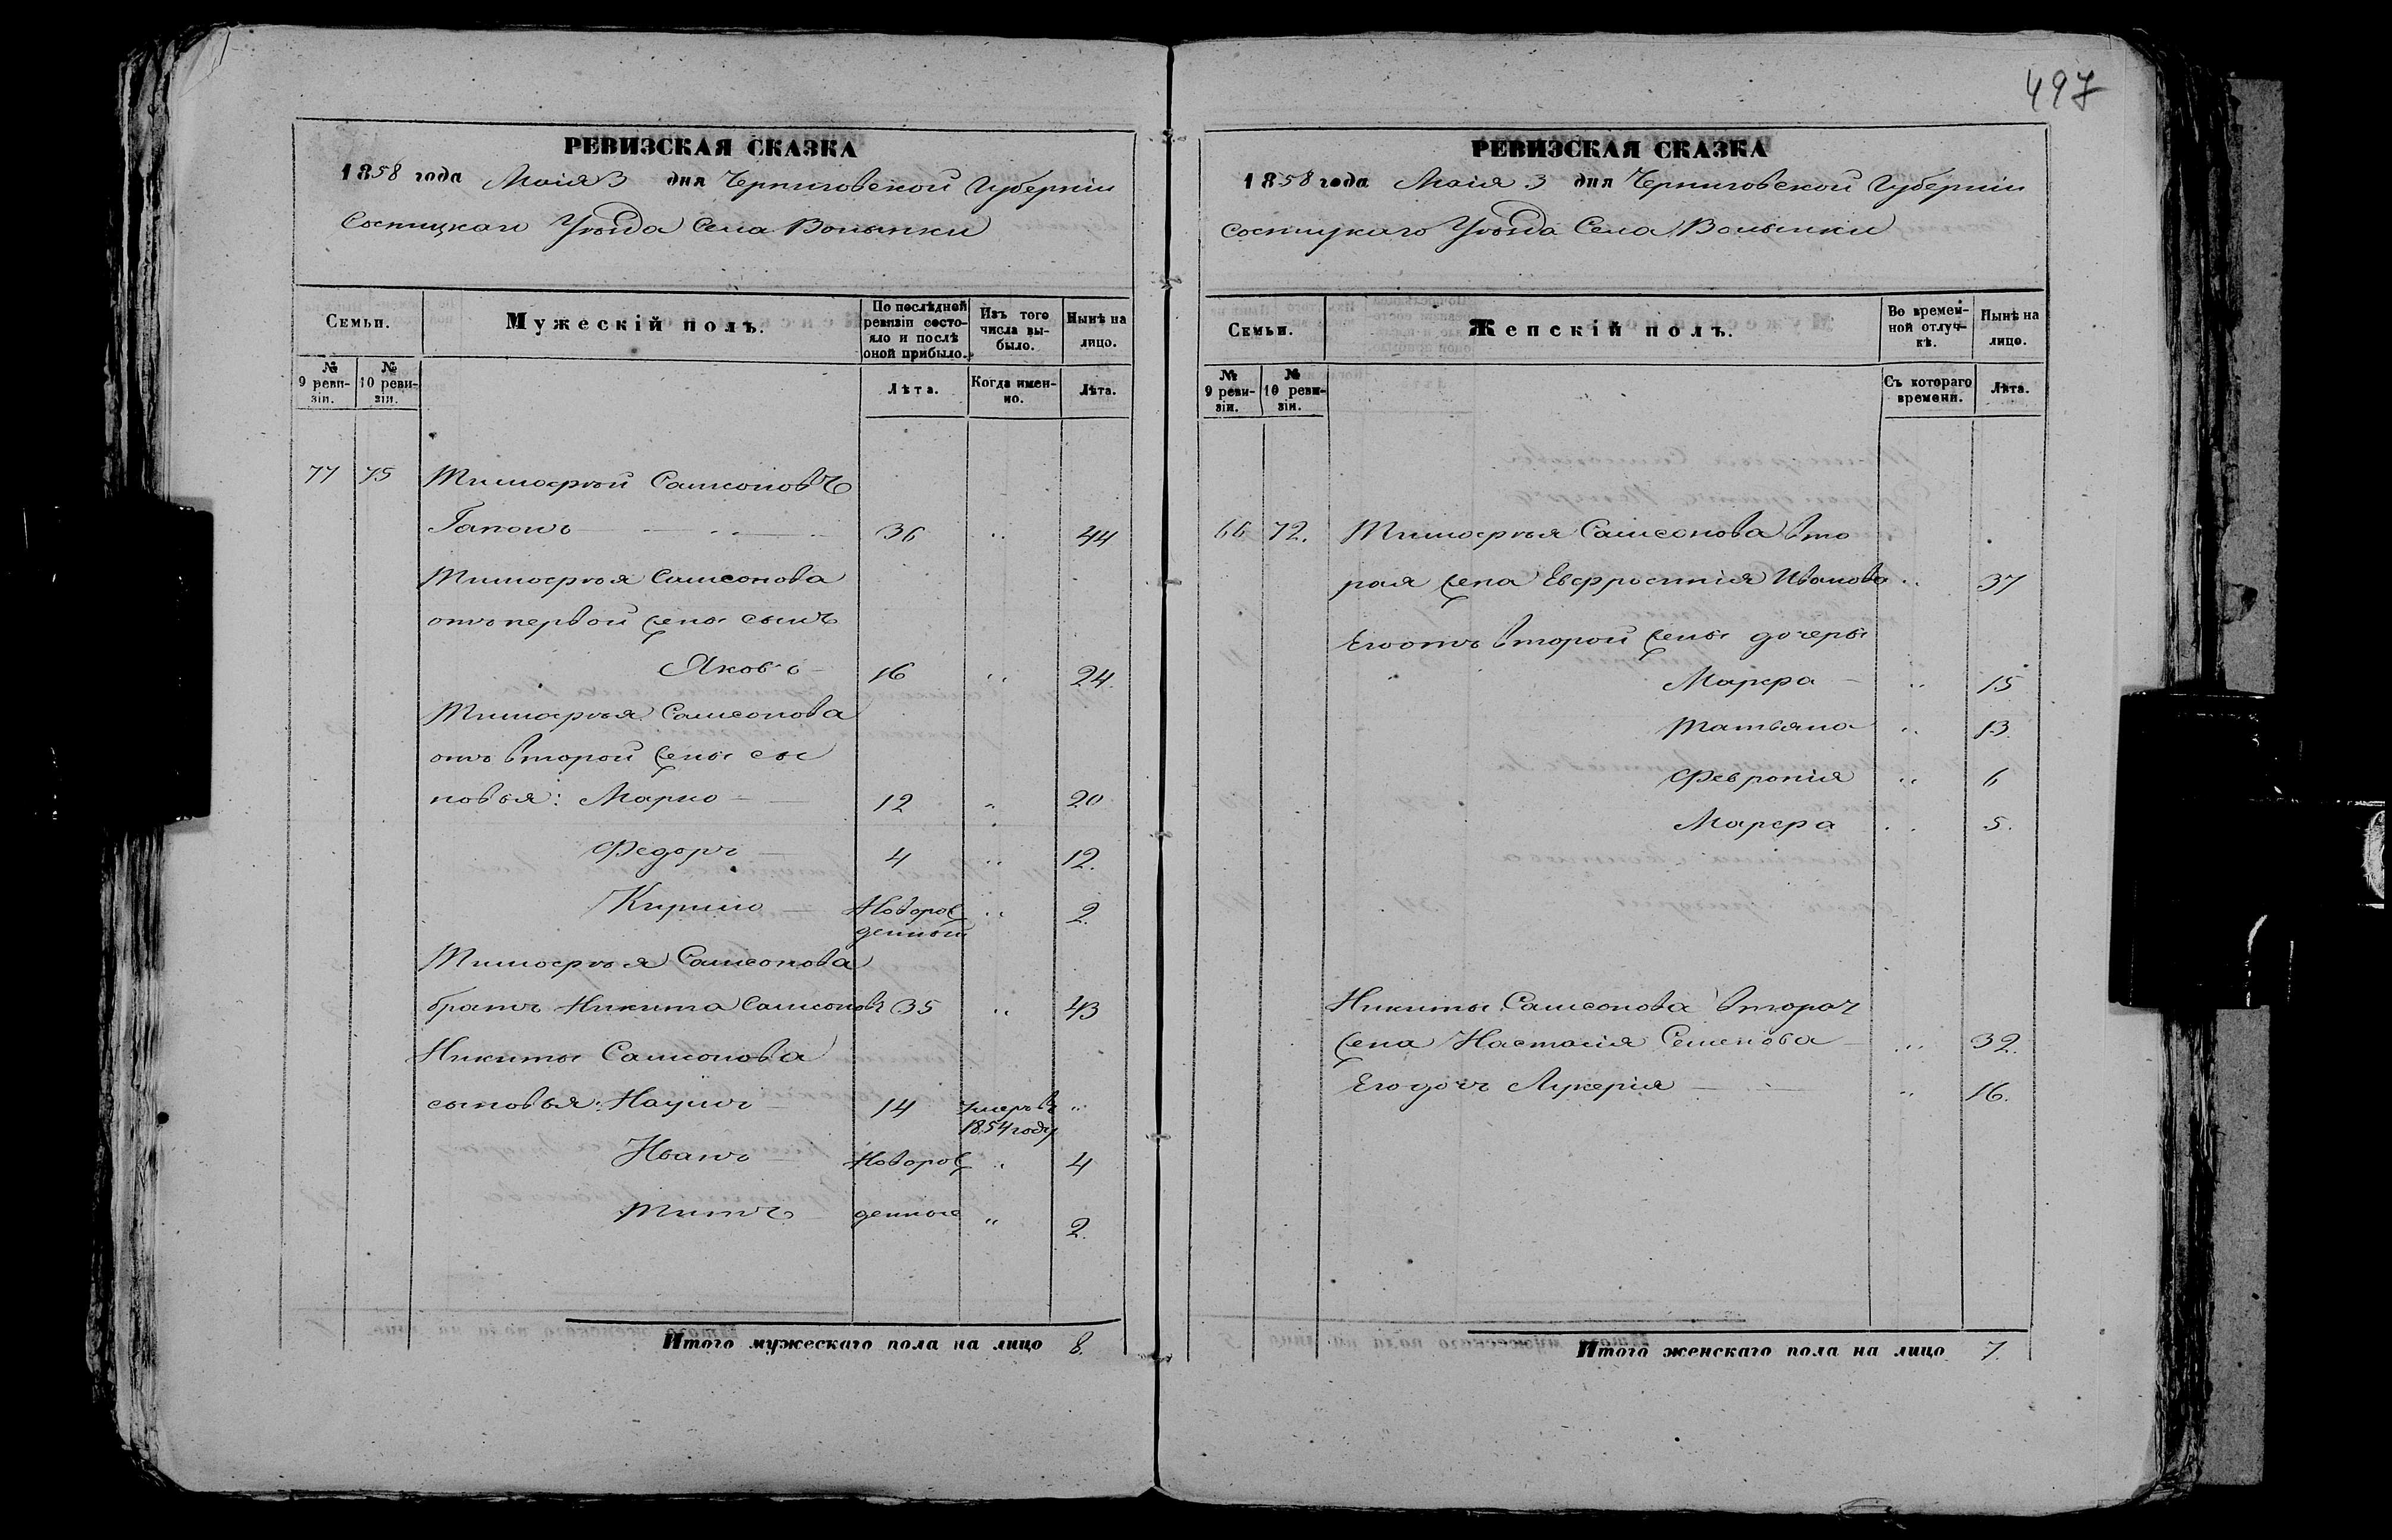 497
РЕВИЗСКАЯ СКАЗКА
1858 года Маія 3 дня Черниговской Губерніи
Сосницкаго Уѣзда Села Волынки
Семьи.
Мужескій полъ.
По послѣдней ревизіи состояло и послѣ оной прибыло.
Изъ того числа выбыло.
Нынѣ на лицо.
№ 9 ревизіи.
№ 10 ревизіи.
Лѣта.
Когда именно.
Лѣта.
77 75 Тимофѣй Самсоновъ
Гапонъ 36 " 44
Тимофѣя Самсонова
отъ первой жены сынъ
Яковъ 16 " 24.
Тимофѣя Самсонова
отъ второй жены сы
новья: Марко 12 " 20
Федоръ 4 " 12.
Кирило Новорож " 2.
денный
Тимофѣя Самсонова
братъ Никита Самсоновъ 35 " 43
Никиты Самсонова
сыновья: Наумъ 14 Умеръ въ "
1854 году
Иванъ Новорож " 4
Титъ денные " 2.
Итого мужескаго пола на лицо 8.
РЕВИЗСКАЯ СКАЗКА
1858 года Маія 3 дня Черниговской Губерніи
Сосницкаго Уѣзда Села Волынки
Семьи.
Женскій полъ.
Во временной отлучкѣ.
Нынѣ на лицо.
№ 9 ревизіи.
№ 10 ревизіи.
Съ котораго времени.
Лѣта.
66 72. Тимофѣя Самсонова вто
рая жена Евфросинія Иванова " 37
Его отъ второй жены дочеры
Марфа " 15
Татьяна " 13.
Февронія " 6
Марфа " 5.
Никиты Самсонова вторая
жена Настасія Семенова " 32.
Его дочь Лукерія " 16.
Итого женскаго пола на лицо 7.